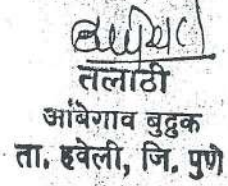 तलाठी
आंबेगाव बुद्रुक
ता. हवेली, जि. पुणे